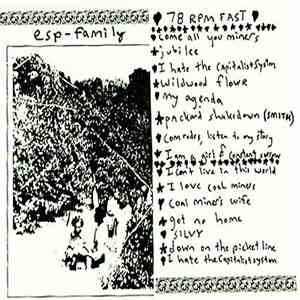 esp-family
78 RPM FAST
Come all you miners
jubilee
I hate the capitalist system
wildwood flowr
my agenda
packard shakedown (SMITH)
Comrades, listen to my story
I am a girl of constant sorrow
I can't live in this world
I love coal miners
coal miner's wife
got no home
SILVY
down on the picket line
I hate the capitalist system